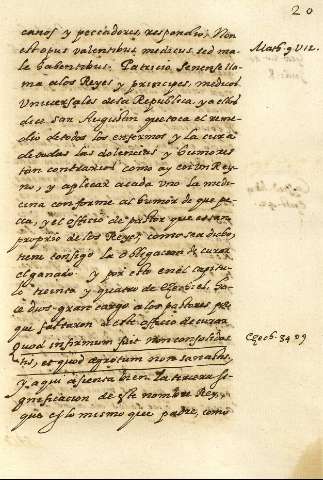 20
canos y peccadores respondio; Non
est opus valentibus medicus sed ma-
le habentibus. Patricio Senense lla-
ma a los Reyes y principes, medicos
Universales de la Republica. y a ellos
dice san Augustin que toca el reme-
dio de todos los enfermos y la cura
de todas las dolencias y humores
tan contrarios como ay en un Rey-
no, y aplicar a cada uno la medi-
cina conforme al humor de que pe-
ca, y el officio de pastor que es tan
proprio de los Reyes, como sea dicho,
tiene consigo la obligacion de curar
el ganado. y por esto en el capitu-
lo treinta y quatro de Ezechiel. ha-
ce dios gran cargo a los pastores por
que faltaron a este officio de curar
Quod infirmum fuit non consolidas-
tis, et quod aegrotum non sanastis,
y aqui asienta bien la tercera si-
gnificacion de este nombre Rey,
que es lo mismo que padre, como
Math. 9 V 12.
Ezech. 34 v 9